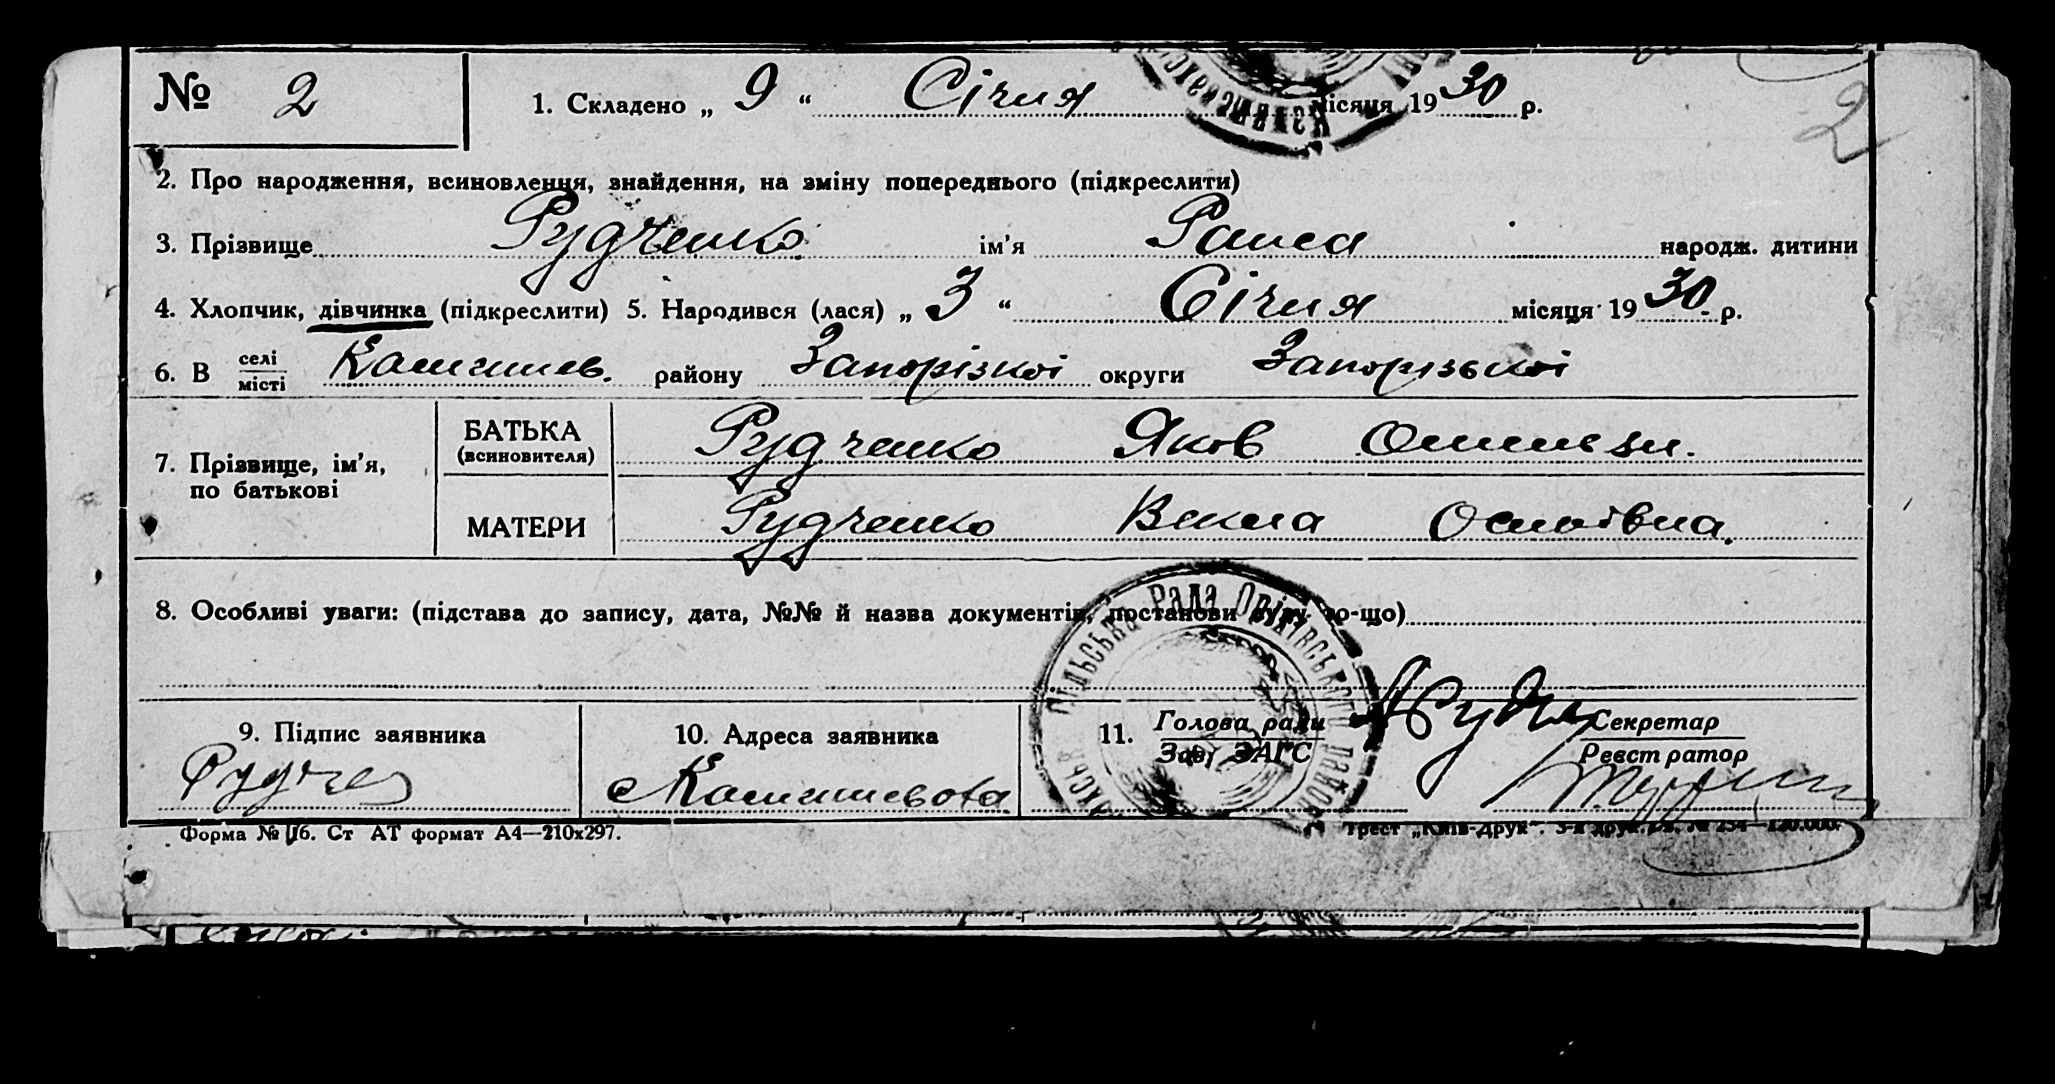 № 2 1. Складено „ 9 “ Січня місяця 1930 р.
2
2. Про народження, всиновлення, знайдення, на зміну попереднього (підкреслити)
3. Прізвище Рудченко ім’я Раиса народж. дитини
4. Хлопчик, дівчинка (підкреслити) 5. Народився (лася) „ 3 “ Січня місяця 1930 р.
6. В селі місті Камишев. району Запорізкої округи Запорізької
7. Прізвище, ім’я, по батькові
БАТЬКА (всиновителя) Рудченко Яков
МАТЕРИ Рудченко Векла
8. Особливі уваги: (підстава до запису, дата, №№ й назва документів, постанови суду то-що)
Рада Оріхівського
9. Підпис заявника 10. Адреса заявника 11. Голова ради Зав. ЗАГС Секретар Реєстратор
Рудче с Камишевата
Форма № 1/б. Ст АТ формат А4—210х297. Трест „Київ-Друк“.